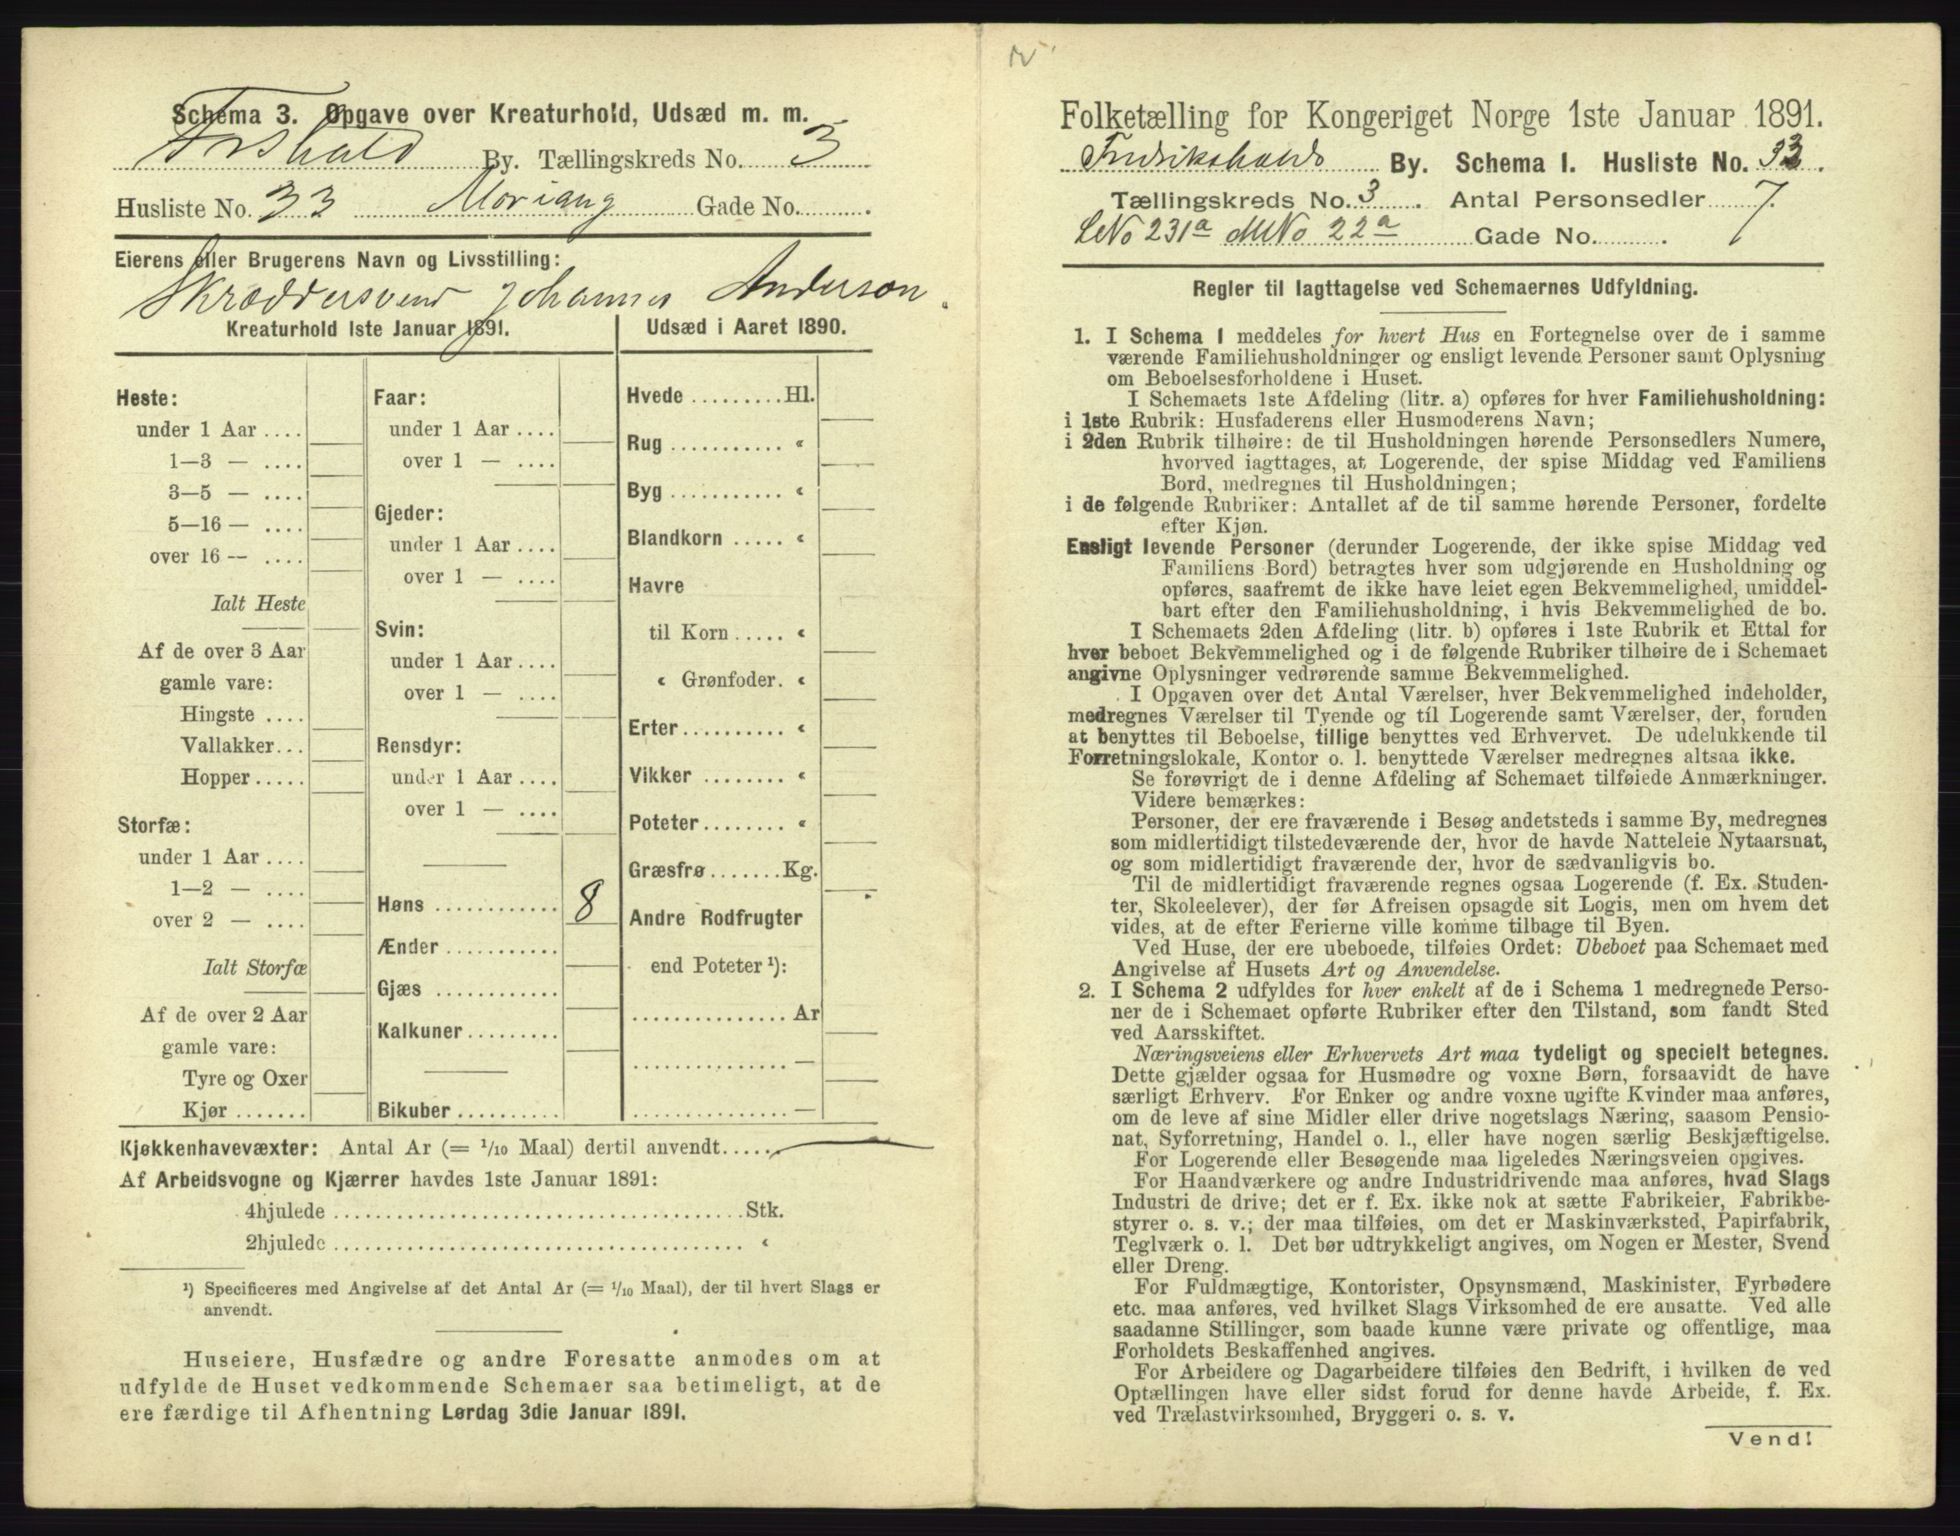 Schema 3. Opgave over Kreaturhold, Udsæd m. m.
Frshald By. Tællingskreds No. 3
Husliste No. 33 Moriang Gade No.
Eierens eller Brugerens Navn og Livsstilling:
Skræddersvend Johannes Anderson.
Kreaturhold 1ste Januar 1891.
Heste:
under 1 Aar ....
1—3 — ....
3—5 — ....
5—16 — ....
over 16 — ....
Ialt Heste
Af de over 3 Aar
gamle vare:
Hingste ....
Vallakker...
Hopper .....
Storfæ:
under 1 Aar ....
1—2 — ....
over 2 — ....
Ialt Storfæ
Af de over 2 Aar
gamle vare:
Tyre og Oxer
Kjør .......
Faar:
under 1 Aar ....
over 1 — ....
Gjeder:
under 1 Aar ....
over 1 — ....
Svin:
under 1 Aar ....
over 1 — ....
Rensdyr:
under 1 Aar ....
over 1 — ....
Høns ............ 8
Ænder ...........
Gjæs ............
Kalkuner.........
Bikuber ..........
Udsæd i Aaret 1890.
Hvede .........Hl.
Rug ........... «
Byg ........... «
Blandkorn ..... «
Havre
til Korn ..... «
« Grønfoder. «
Erter.......... «
Vikker ........ «
Poteter........ «
Græsfrø.......Kg.
Andre Rodfrugter
end Poteter ¹):
...............Ar
...............—
...............—
Kjøkkenhavevæxter: Antal Ar (= 1/10 Maal) dertil anvendt.....
Af Arbeidsvogne og Kjærrer havdes 1ste Januar 1891:
4hjulede .......................................Stk.
2hjulede ....................................... «
¹) Specificeres med Angivelse af det Antal Ar (= 1/10 Maal), der til hvert Slags er
anvendt.
Huseiere, Husfædre og andre Foresatte anmodes om at
udfylde de Huset vedkommende Schemaer saa betimeligt, at de
ere færdige til Afhentning Lørdag 3die Januar 1891.
Folketælling for Kongeriget Norge 1ste Januar 1891.
Fredrikshalds By. Schema I. Husliste No. 33.
Tællingskreds No. 3. Antal Personsedler 7.
LNo 231a MNo 22a Gade No. .
Regler til Iagttagelse ved Schemaernes Udfyldning.
1. I Schema 1 meddeles for hvert Hus en Fortegnelse over de i samme
værende Familiehusholdninger og ensligt levende Personer samt Oplysning
om Beboelsesforholdene i Huset.
I Schemaets 1ste Afdeling (litr. a) opføres for hver Familiehusholdning:
i 1ste Rubrik: Husfaderens eller Husmoderens Navn;
i 2den Rubrik tilhøire: de til Husholdningen hørende Personsedlers Numere,
hvorved iagttages, at Logerende, der spise Middag ved Familiens
Bord, medregnes til Husholdningen;
i de følgende Rubriker: Antallet af de til samme hørende Personer, fordelte
efter Kjøn.
Ensligt levende Personer (derunder Logerende, der ikke spise Middag ved
Familiens Bord) betragtes hver som udgjørende en Husholdning og
opføres, saafremt de ikke have leiet egen Bekvemmelighed, umiddel-
bart efter den Familiehusholdning, i hvis Bekvemmelighed de bo.
I Schemaets 2den Afdeling (litr. b) opføres i 1ste Rubrik et Ettal for
hver beboet Bekvemmelighed og i de følgende Rubriker tilhøire de i Schemaet
angivne Oplysninger vedrørende samme Bekvemmelighed.
I Opgaven over det Antal Værelser, hver Bekvemmelighed indeholder,
medregnes Værelser til Tyende og til Logerende samt Værelser, der, foruden
at benyttes til Beboelse, tillige benyttes ved Erhvervet. De udelukkende til
Forretningslokale, Kontor o. l. benyttede Værelser medregnes altsaa ikke.
Se forøvrigt de i denne Afdeling af Schemaet tilføiede Anmærkninger.
Videre bemærkes:
Personer, der ere fraværende i Besøg andetsteds i samme By, medregnes
som midlertidigt tilstedeværende der, hvor de havde Natteleie Nytaarsnat,
og som midlertidigt fraværende der, hvor de sædvanligvis bo.
Til de midlertidigt fraværende regnes ogsaa Logerende (f. Ex. Studen-
ter, Skoleelever), der før Afreisen opsagde sit Logis, men om hvem det
vides, at de efter Ferierne ville komme tilbage til Byen.
Ved Huse, der ere ubeboede, tilføies Ordet: Ubeboet paa Schemaet med
Angivelse af Husets Art og Anvendelse.
2. I Schema 2 udfyldes for hver enkelt af de i Schema 1 medregnede Perso-
ner de i Schemaet opførte Rubriker efter den Tilstand, som fandt Sted
ved Aarsskiftet.
Næringsveiens eller Erhvervets Art maa tydeligt og specielt betegnes.
Dette gjælder ogsaa for Husmødre og voxne Børn, forsaavidt de have
særligt Erhverv. For Enker og andre voxne ugifte Kvinder maa anføres,
om de leve af sine Midler eller drive nogetslags Næring, saasom Pensio-
nat, Syforretning, Handel o. l., eller have nogen særlig Beskjæftigelse.
For Logerende eller Besøgende maa ligeledes Næringsveien opgives.
For Haandværkere og andre Industridrivende maa anføres, hvad Slags
Industri de drive; det er f. Ex. ikke nok at sætte Fabrikeier, Fabrikbe-
styrer o. s. v.; der maa tilføies, om det er Maskinværksted, Papirfabrik,
Teglværk o. l. Det bør udtrykkeligt angives, om Nogen er Mester, Svend
eller Dreng.
For Fuldmægtige, Kontorister, Opsynsmænd, Maskinister, Fyrbødere
etc. maa anføres, ved hvilket Slags Virksomhed de ere ansatte. Ved alle
saadanne Stillinger, som baade kunne være private og offentlige, maa
Forholdets Beskaffenhed angives.
For Arbeidere og Dagarbeidere tilføies den Bedrift, i hvilken de ved
Optællingen have eller sidst forud for denne havde Arbeide, f. Ex.
ved Trælastvirksomhed, Bryggeri o. s. v.
Vend!